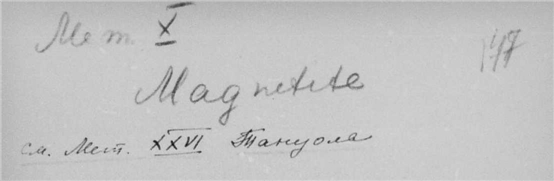 Мет. X
147
Magnetite
см. Мет. XXVI Тануола